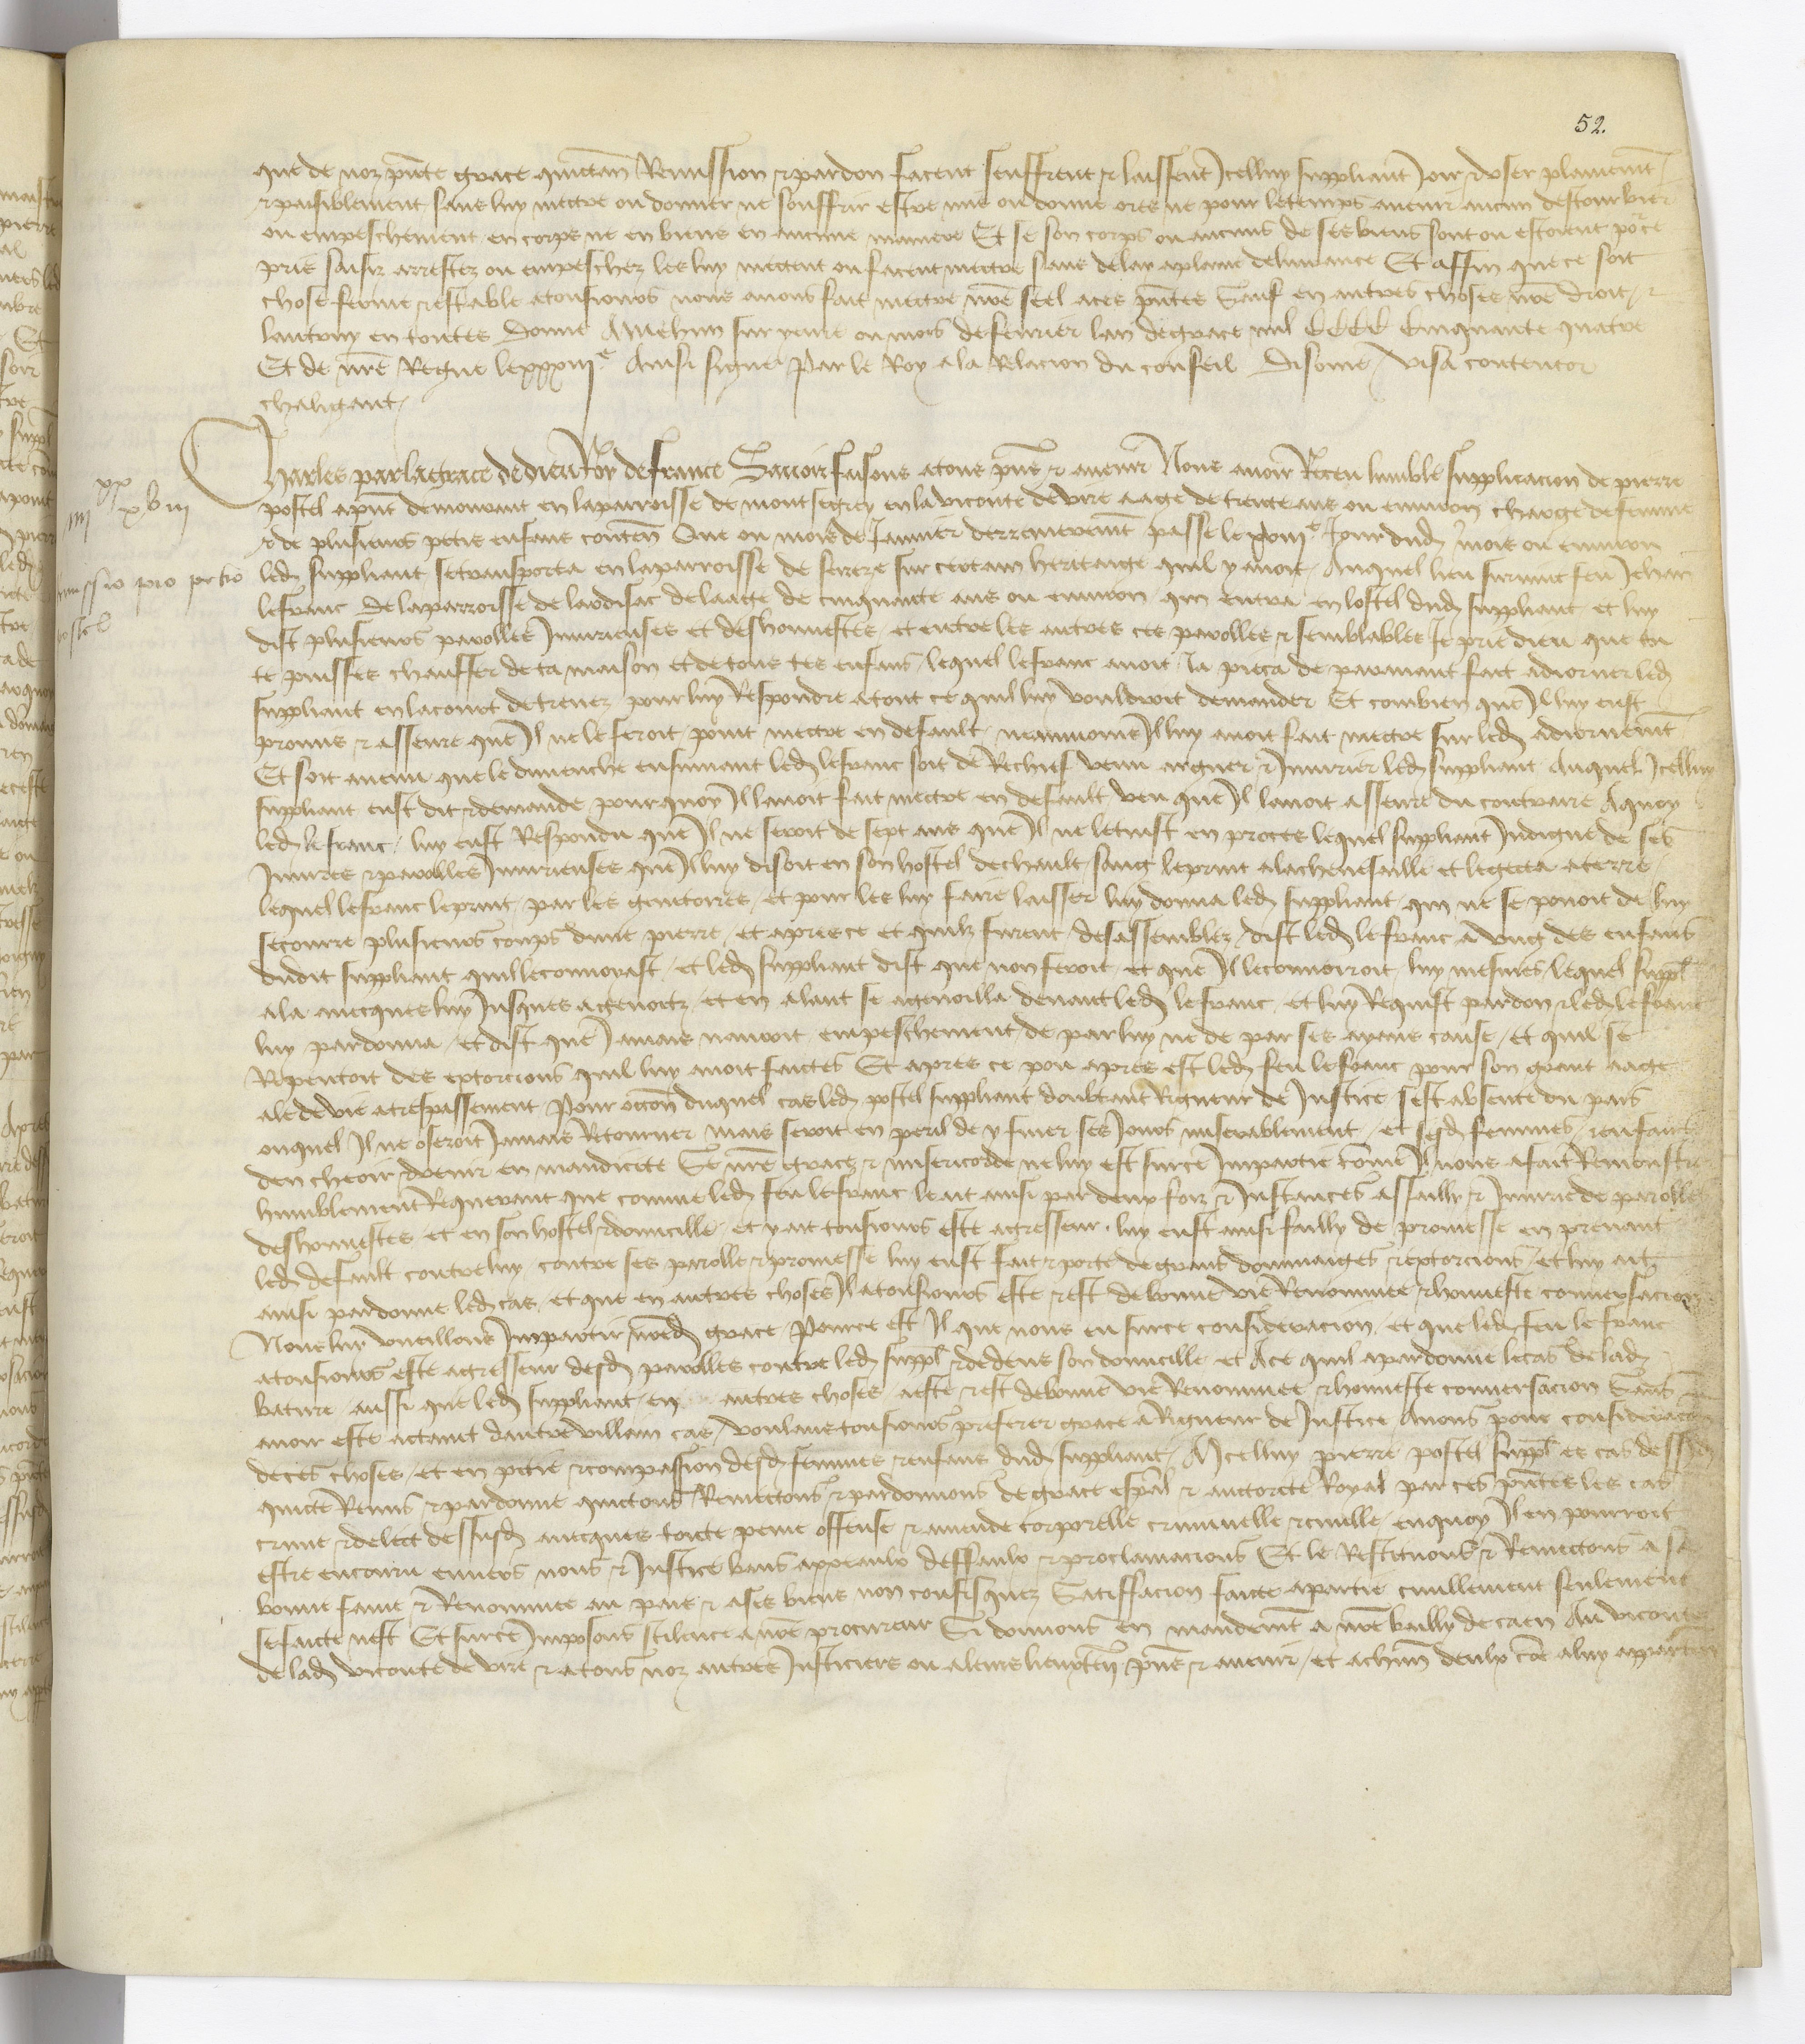 52.
que de noz pñte grace quictañ Remission & pardon facent seuffrent & laissent Icelluy suppliant Joir & user plainemẽt
& paisiblement sans luy mectre ou donner ne souffrir estre mis ou donne ores ne pour le temps avenir aucun destourbier
ou empeschement en corps ne en biens en aucune maniere Et se son corps ou aucuns de ses biens sont ou estoient pour ce
pris saisiz arrestez ou empeschez les luy mectent ou facent mectre sans delay a plaine delivrance Et affin que ce soit
chose ferme & estable a tousiours nous avons fait mectre nr̃e seel a ces pñtes Sauf en autres choses nr̃e droit &
lautruy en toutes Donne A Mehun sur yevre ou mois de fevrier lan de grace mil CCCC Cinquante quatre
Et de nr̃e Regne le xxxiii.e Ainsi signe Par le Roy a la Relacion du conseil Disome visa contentor
chaligant
Charles par la grace de dieu Roy de france Savoir faisons a tous pñs & avenir Nous avoir Receu humble supplicacion de pierre
postel apñt demourant en la parroisse de montsegrey en la viconte de vire aage de trente ans ou environ charge de femme
& de plusieurs petis enfans conteñ Que ou mois de Janvier derrenierement passe le xviii.e Jour dud mois ou environ
led suppliant se transporta en la parroisse de serreze sur certain heritaige quil y avoit Auquel lieu survint feu Jehan
lefranc de la parroisse de laudisac de laage de cinquante ans ou environ qui entra en lostel dud suppliant et luy
dist plusieurs parolles Iniurieuses et deshonnestes et entre les autres ces parolles & semblables Je prie dieu que tu
te puisses chauffer de ta maison et de tous tes enfans lequel lefranc avoit Ja pieca de paravant fait adiorner led
suppliant en la court de trenez pour luy Respondre a tout ce quil luy vouldroit demander Et combien que Il luy eust
promis & asseure que Il ne le feroit point mectre en default neantmoins Il luy avoit fait mectre sur led adiornemẽt
Et soit avenu que le dimenche ensuivant led lefranc soit de Rechief venu arguer & Iniurier led suppliant Auquel Icelluy
suppliant eust dit & demande pourquoy Il lavoit fait mectre en default veu que Il lavoit asseure du contraire A quoy
led lefranc luy eust Respondu que Il ne seroit de sept ans que Il ne le tinst en proces lequel suppliant Indigne de ses
Iniures & parolles Iniurieuses que Il luy disoit en son hostel de chault sang le print a la chevesaille et le gecta a terre
lequel lefranc le print par les genitoires et pour les luy faire laisser luy donna led suppliant qui ne se povoit de luy
secourre plusieurs coups dune pierre et apres ce et quilz furent desassemblez dist led lefranc a ung des enfans
dudit suppliant quil le convoyast et led suppliant dist que non feroit et que Il le convoirroit luy mesmes lequel suppl
ala avecques luy Jusques a genoitz et en alant se agenoilla devant led lefranc et luy Requist pardon & led lefranc
luy pardonna et dist que Jamais nauroit empeschement de par luy ne de par ses ayans cause et quil se
Repentoit des extorcions quil luy avoit faictes Et apres ce pou apres est led feu lefranc pour son grant aage
ale de vie a trespassement Pour occoñ duquel cas led postel suppliant doubtant Rigueur de Justice sest absente du pais
ouquel Il ne oseroit Jamais Retourner mais seroit en peril de y finer ses Jours miserablement et sesd femmes & enfans
den cheoir & venir en mandicite Se nr̃e grace & misericorde ne luy est sur ce Impartie com̃e Il nous a fait Remonstrer
humblement Requerant que comme led feu lefranc le ait ainsi par deux foiz & Instances assailly & Iniurie de parolles
deshonnestes et en son hostel & domicille et y ait tousiours este agresseur luy eust ainsi failly de promesse en prenant
led default contre luy contre ses parolle & promesse luy eust fait & porte de grans dommaiges & extorcions et luy ait
ainsi pardonne led cas et que en autres choses Il a tousiours este & est de bonne vie Renommee & honneste conversacion
Nous luy vueillons Impartir nr̃ed grace Pource est Il que nous eu sur ce consideracion et que led feu lefranc
a tousiours este agresseur desd parolles contre led suppl & dedens son domicille et A ce quil a pardonne le cas de lad
bature aussi que led suppliant en autres choses a este & est de bonne vie Renommee & honneste conversacion Sans
avoir este actaint dautre villain cas voulans tousiours preferer grace a Rigueur de Justice Avons pour consideracõn
de ces choses et en pitie & compassion desd femmes & enfans dud suppliant A Icelluy pierre postel suppl es cas dessusd
quicte Remis & pardonne quictons Remectons & pardonnons de grace esp̃al & auctorite Royal par ces pñtes les cas
crime & delict dessusd avecques toute peine offense & amende corporelle criminelle & civille en quoy Il en pourroit
estre encouru envers nous & Justice bans appeaulx deffaulx & proclamacions Et le Restituons & Remectons a sa
bonne fame & Renommee au pais & a ses biens non confisquez Satisfacion faicte a partie civillement seulement
se faicte nest Et sur ce Imposons silence a nr̃e procureur Si donnons en mandemẽt a nr̃e bailly de caen Au viconte
de lad viconte de vire & a tous noz autres Justiciers ou a leurs lieuxteñ pñs & avenir et a chũn deulx com̃e a luy appartien
iiii xx xviii
Remissio pro petro
postel